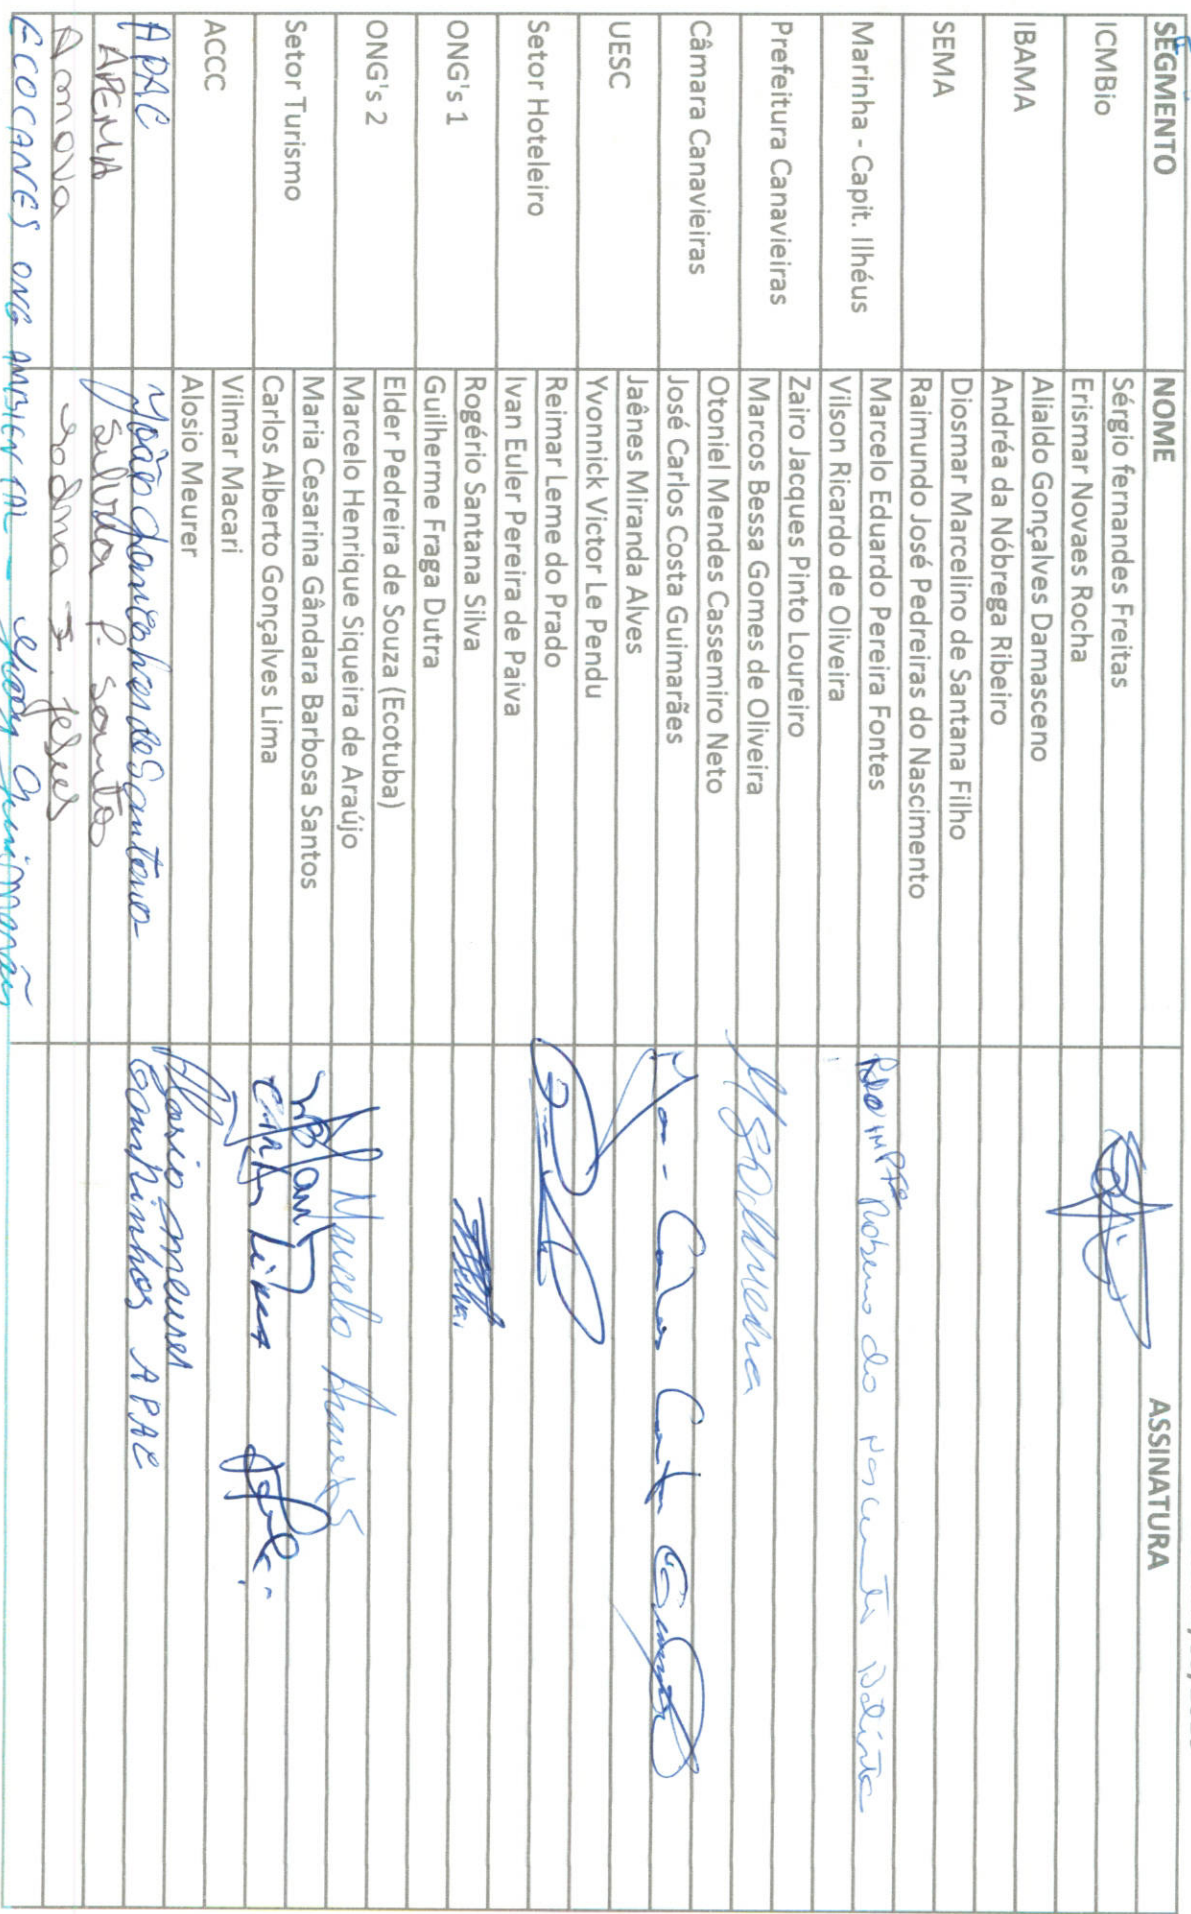 SEGMENTO NOME ASSINATURA
ICMBio Sérgio fernandes Freitas
Erismar Novaes Rocha
IBAMA Alialdo Gonçalves Damasceno
Andréa da Nóbrega Ribeiro
SEMA Diosmar Marcelino de Santana Filho
Raimundo José Pedreiras do Nascimento
Marinha - Capit. Ilhéus Marcelo Eduardo Pereira Fontes
Vilson Ricardo de Oliveira
Prefeitura Canavieiras Zairo Jacques Pinto Loureiro
Marcos Bessa Gomes de Oliveira
Câmara Canavieiras Otoniel Mendes Cassemiro Neto
José Carlos Costa Guimarães
UESC Jaênes Miranda Alves
Yvonnick Victor Le Pendu
Setor Hoteleiro Reimar Leme do Prado
Ivan Euler Pereira de Paiva
ONG's 1 Rogério Santana Silva
Guilherme Fraga Dutra
ONG's 2 Elder Pedreira de Souza (Ecotuba)
Marcelo Henrique Siqueira de Araújo Marcelo
Setor Turismo Maria Cesarina Gândara Barbosa Santos
Carlos Alberto Gonçalves Lima Lima
ACCC Vilmar Macari
Alosio Meurer Alosio meurer
APAC João de Santana Gominhos APAC
APEMA Silvia P. Santos
J. Jesus
ECOCANES ONG AMBIENTAL - Guimarães